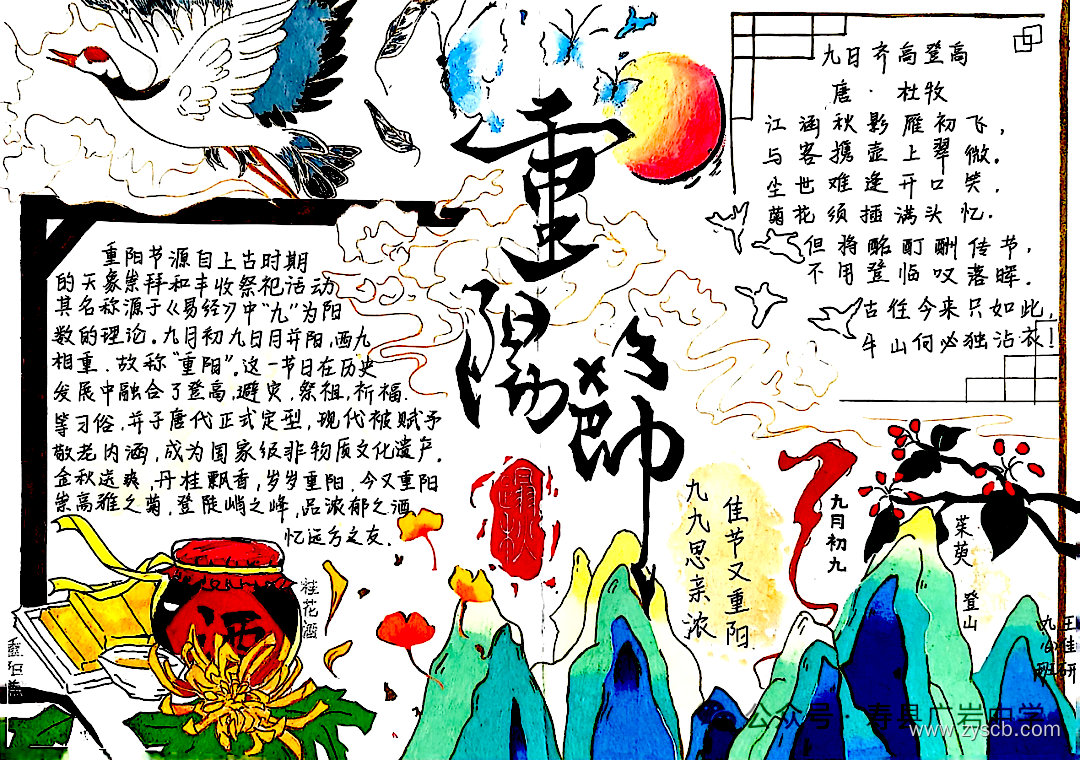 重陽節
重阳节源自上古时期
的天象崇拜和丰收祭祀活动
其名称源于《易经》中"九"为阳
数的理论。九月初九日月并阳,两九
相重,故称"重阳"。这一节日在历史
发展中融合了登高,避灾,祭祖,祈福.
等习俗,并于唐代正式定型,现代被赋予
敬老内涵,成为国家级非物质文化遗产.
金秋送爽,丹桂飘香,岁岁重阳,今又重阳
崇高雅之菊,登陡峭之峰,品浓郁之酒
忆远方之友.
九日齐高登高
唐·杜牧
江涵秋影雁初飞,
与客携壶上翠微.
尘世难逢开口笑,
菊花须插满头忆.
但将酩酊酬佳节,
不用登临叹落晖.
古往今来只如此,
牛山何必独沾衣!
佳节又重阳
九九思亲浓
九月初九
茱萸
登山
桂花酒
酒
公众号·寿县广岩中学
www.zyscb.com